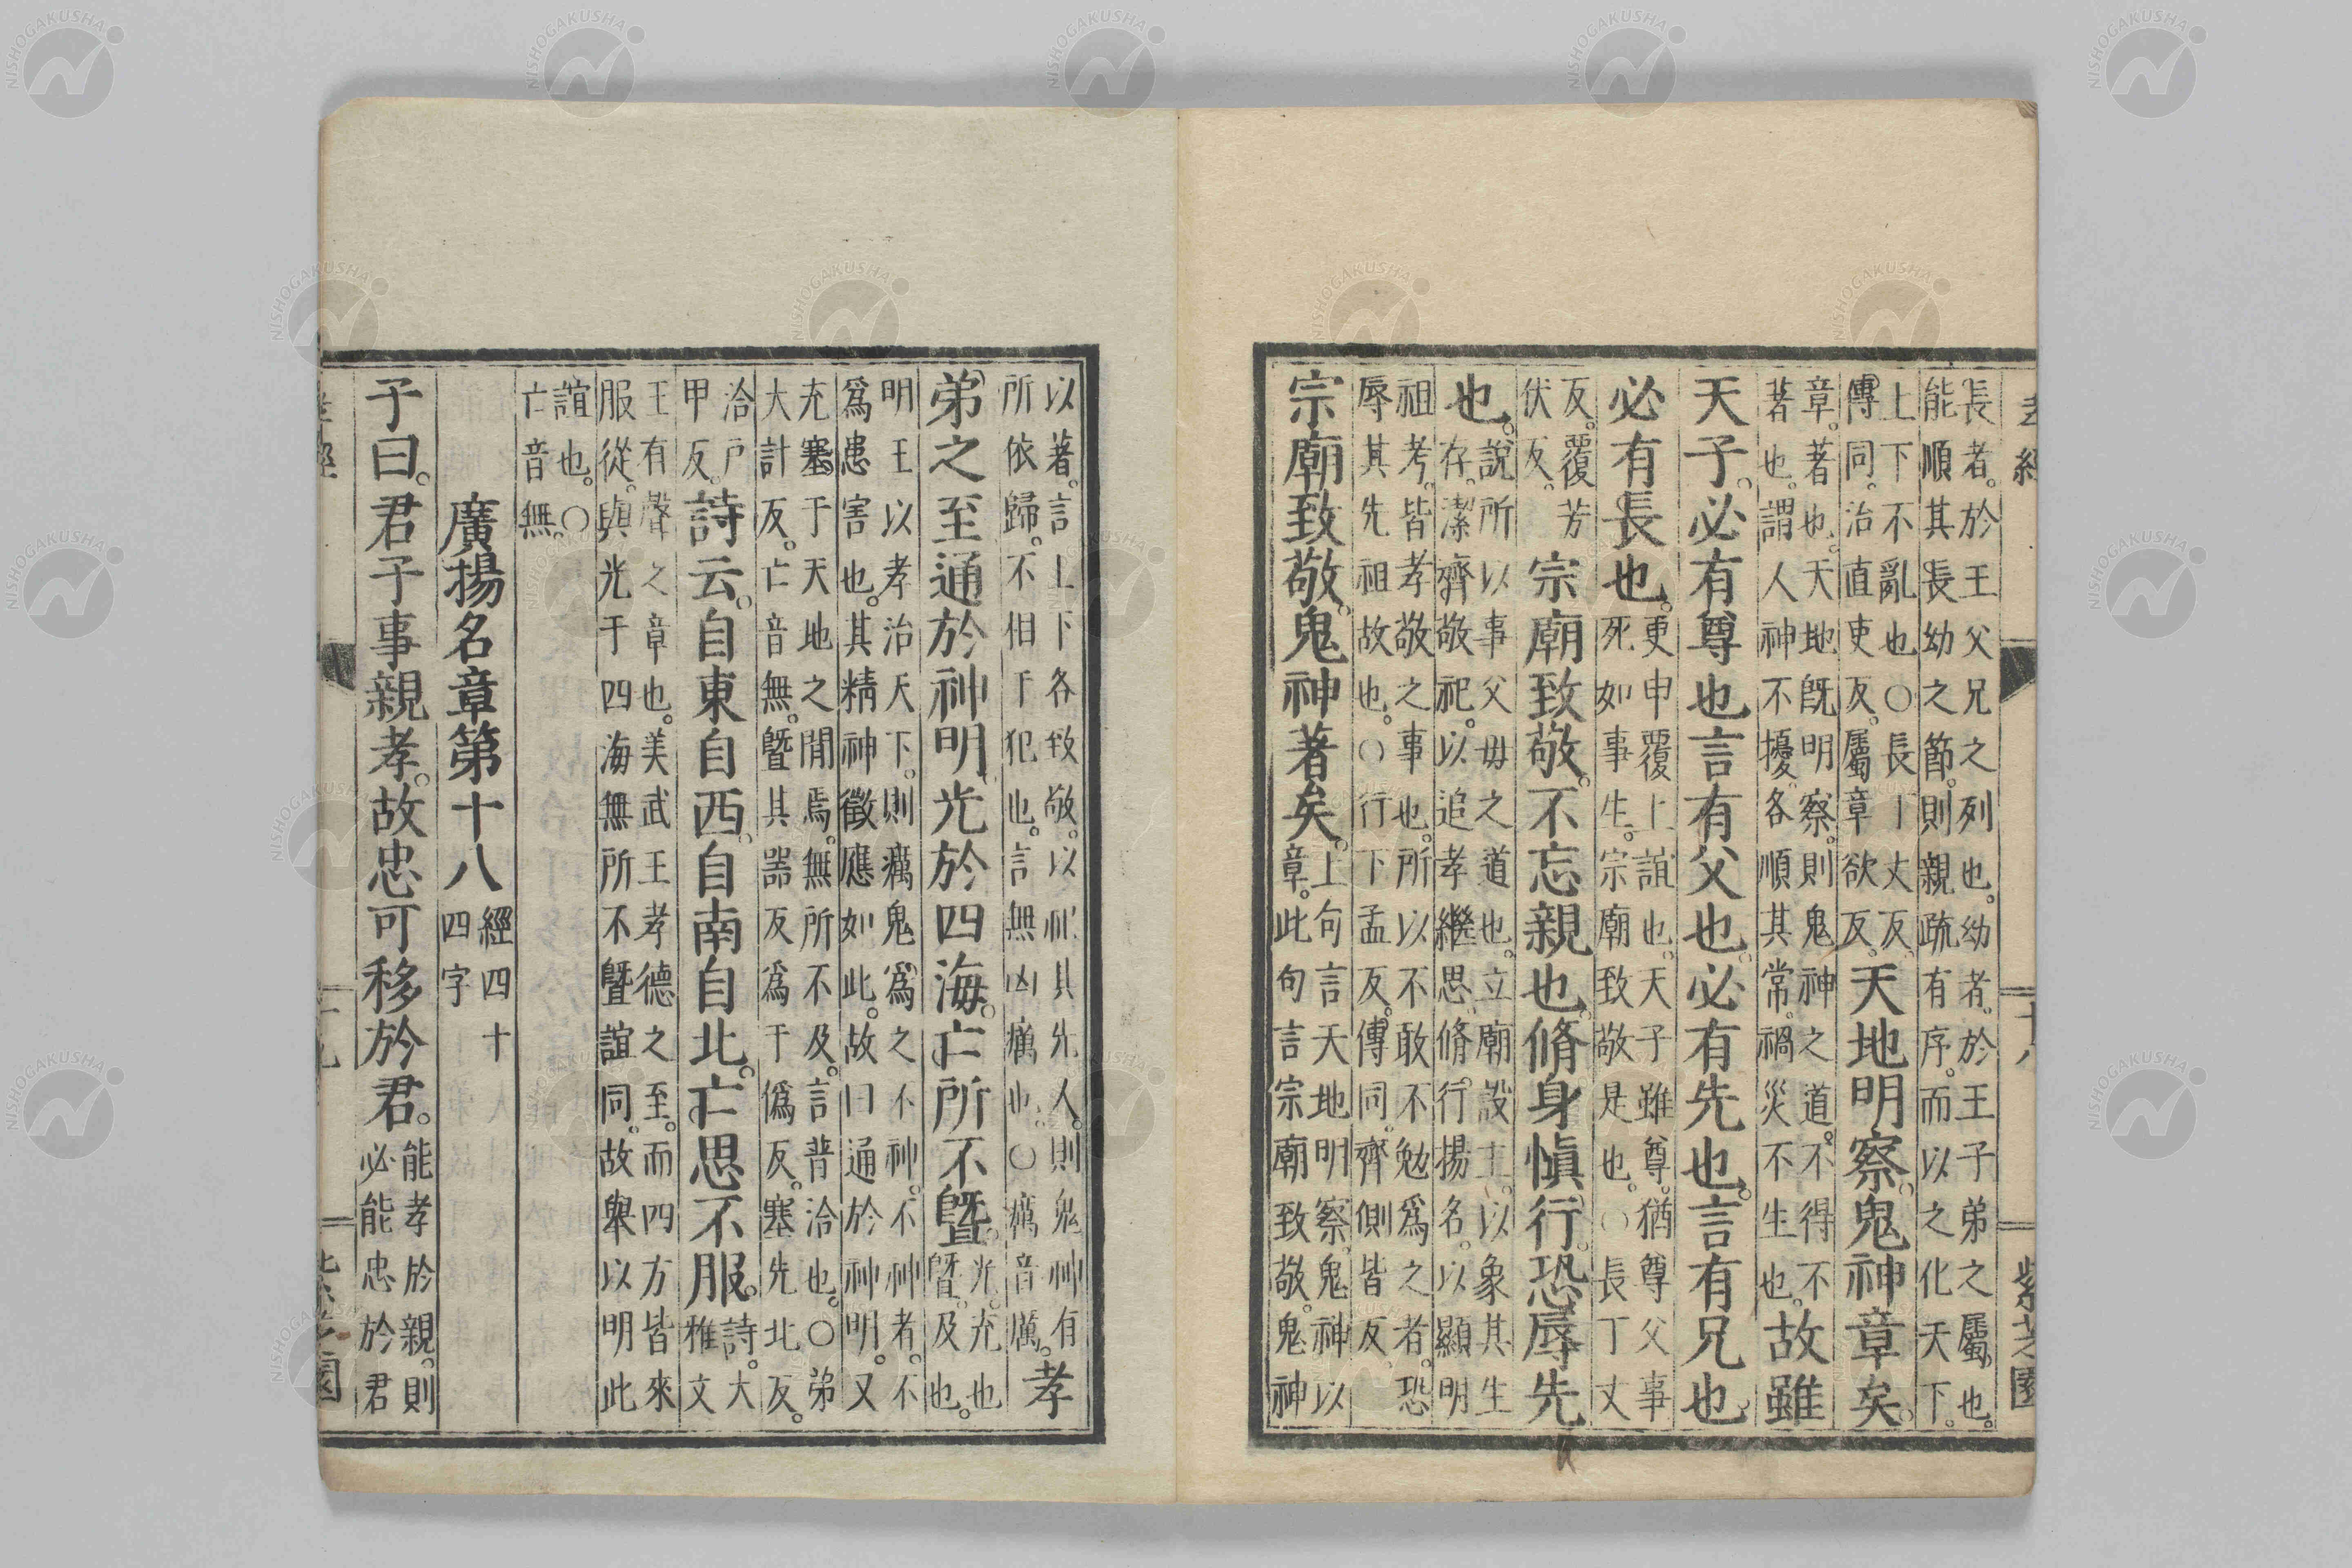 長者。於王父兄之列也。幼者。於王子弟之屬也。
能順其長幼之節。則親疏有序。而以之化天下。
上下不亂也〇長丁丈反。
傳同。治直吏反。屬章欲反。天地明察。鬼神章矣。
章。著也。天地既明察。則鬼神之道。不得不
著也。謂人神不擾。各順其常。禍災不生也。故雖
天子。必有尊也言有父也。必有先也。言有兄也。
必有長也。更申覆上誼也。天子雖尊。猶尊父事
死如事生。宗廟致敬是也。〇長丁丈
反。覆芳
伏反。宗廟致敬。不忘親也。脩身愼行。恐辱先
也。說所以事父母之道也。立廟設主。以象其生
存。潔齊敬祀。以追孝繼思。脩行揚名。以顯明
祖考。皆孝敬之事也。所以不敢不勉爲之者。恐
辱其先祖故也。〇行下孟反。傳同。齊側皆反。
宗廟致敬。鬼神著矣。上句言天地明察。鬼神以
章。此句言宗廟致敬。鬼神
以著。言上下各致敬。以祀其先人。則鬼神有
所依歸。不相干犯也。言無凶癘也。〇癘音厲。孝
弟之至通於神明光於四海。亡所不曁。光。充也
曁。及也。
明王以孝治天下。則癘鬼爲之不神。不神者。不
爲患害也。其精神徵應如此。故曰通於神明。又
充塞于天地之閒焉。無所不及。言普洽也。〇弟
大計反。亡音無。曁其器反爲于僞反。塞先北反。
洽戶
甲反。詩云。自東自西。自南自北。亡思不服。詩。大
雅文
王有聲之章也。美武王孝德之至。而四方皆來
服從。與光于四海無所不曁誼同。故舉以明此
誼也。〇
亡音無。
廣揚名章第十八 經四十
四字
子曰。君子事親孝。故忠可移於君。能孝於親。則
必能忠於君